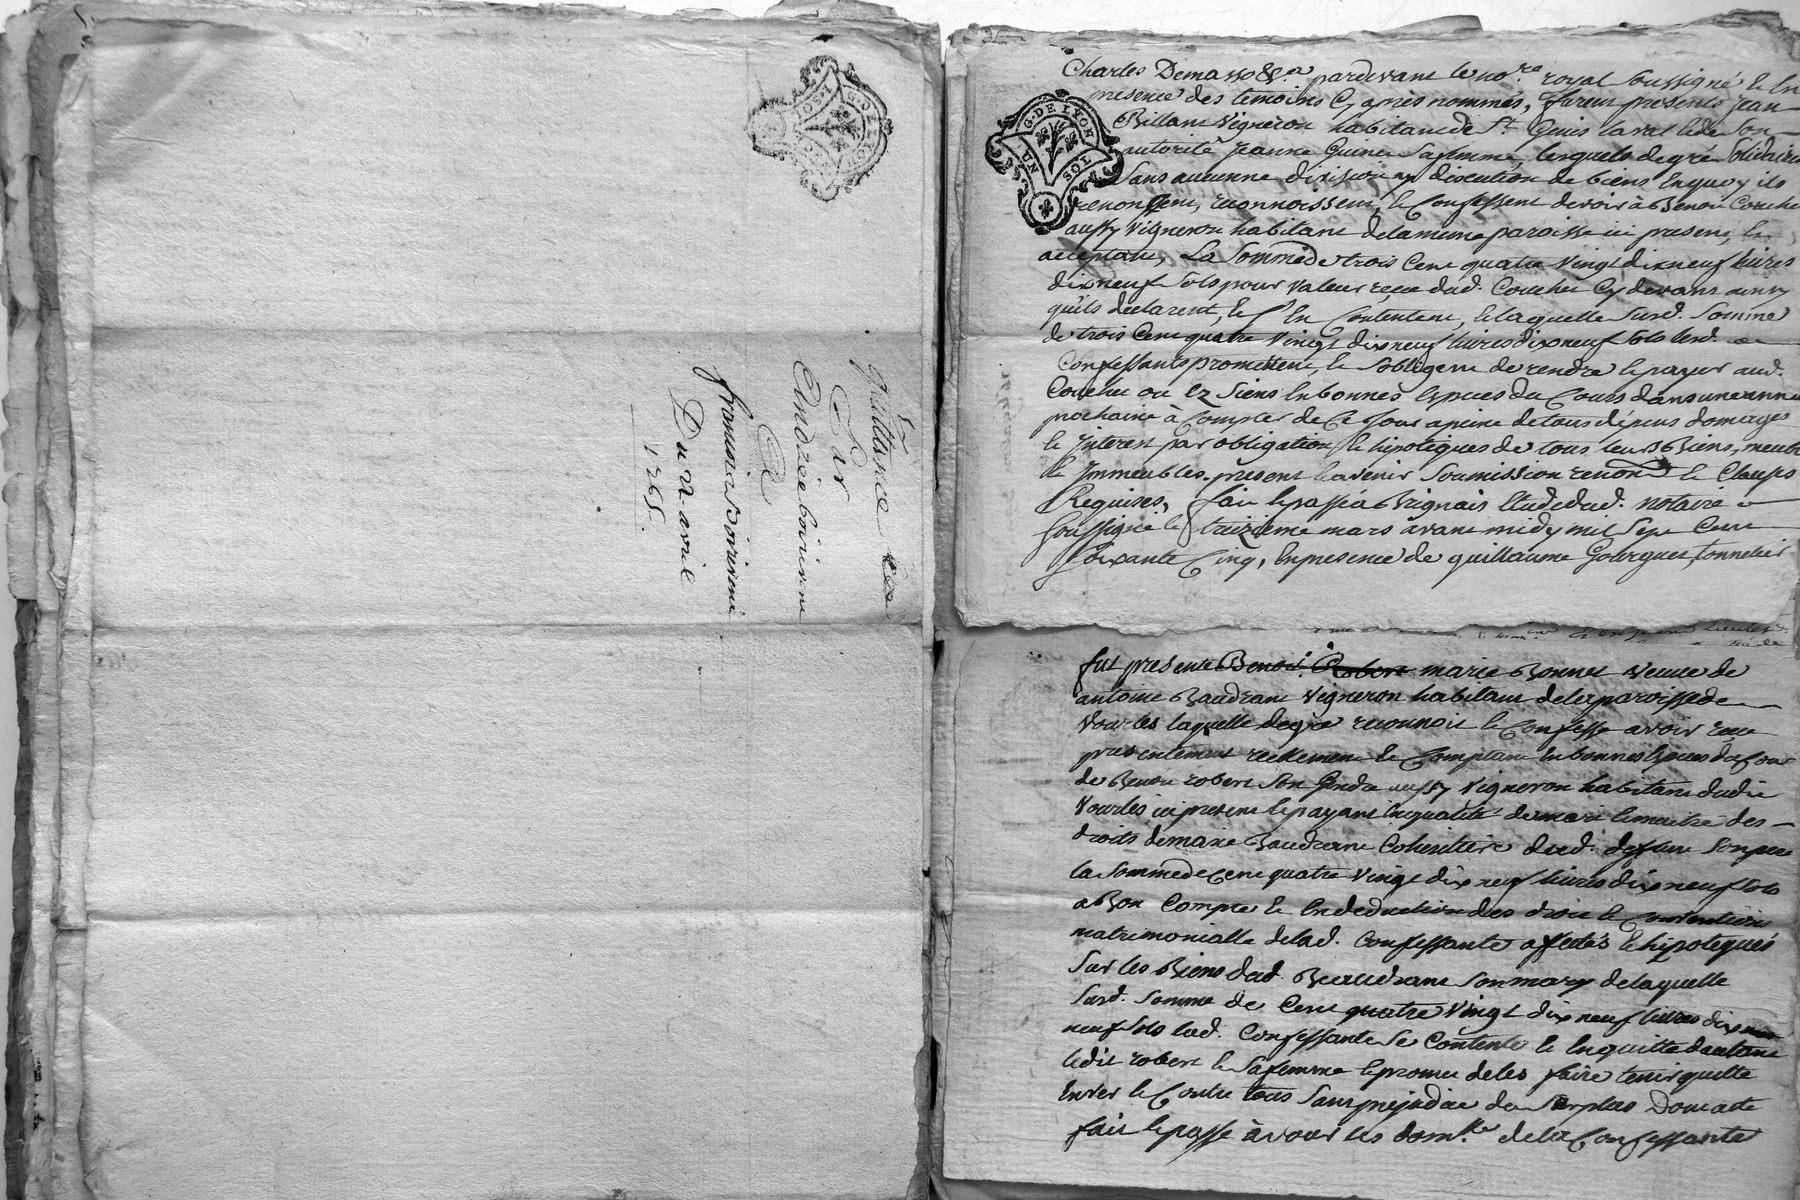 G. DE LYON
UN SOL
Quittance
Par
André Boiriven
A
francois Boiriven
Du 22 avril
1765.
G. DE LYON
UN SOL
pardevant le no.re royal soussigné & En
presence des temoins Cy apres nommés, furent presents jean
Billant Vigneron habitant de St. Genis Laval & de son
autorité Jeanne Guinet sa femme, lesquels de gré solidairem
sans aucune division ny discution de biens Enquoy ils
renonssent, reconnoissent, & Confessent devoir à Benoit Couchet
aussy Vigneron habitant de la meme paroisse ici present, &
acceptant, La Somme de trois Cent quatre Vingt dix neuf livres
dix neuf sols pour valeur reçue dud. Couchet Cy devant ainsy
qu'ils declarent, & s'En Contentent, & laquelle susd. Somme
de trois Cent quatre Vingt dix neuf livres dix neuf sols lesd.
Confessants promettent, & s'obligent de rendre & payer aud.
Couchet ou ez siens En bonnes Espèces du Cours dans une année
prochaine à Compter de Ce jour a peine de tous dépens domages
& interest par obligation & hipoteques de tous leurs Biens, meubles
& Immeubles present & avenir soumission renon & Clauses
Requises, fait & passé a Brignais Etude dud. notaire
soussigné le treizieme mars avant midy mil sept Cent
soixante Cinq, En presence de guillaume Gobergues tonnelier
fut presente Benoit Robert marie Bonnet Veuve de
antoine Baudrant Vigneron habitant de la paroisse de
Vourles laquelle de gré reconnoit & Confesse avoir reçu
presentement reellement & Comptant En bonnes Especes du Cour
de Benoit robert son Gendre aussy Vigneron habitant dudit
Vourles ici present & payant En qualité de mari & maitre des
droits de marie Baudrant Coheritiere dud. defunt son pere
la somme de Cent quatre Vingt dix neuf livres dix neuf sols
a Bon Compte & En deduction des droit & Convention
matrimonialle de lad. Confessante affectés & hipotequés
sur les Biens dud. Beaudrant son mary de laquelle
susd. somme de Cent quatre Vingt dix neuf livres dix
neuf sols lad. Confessante se Contente & En quitte d'autant
ledit robert & sa femme & promet de les faire tenir quitte
Enver & Contre tous sans prejudice du surplus Dont acte
fait & passé à vourles dom.lle de la Confessante